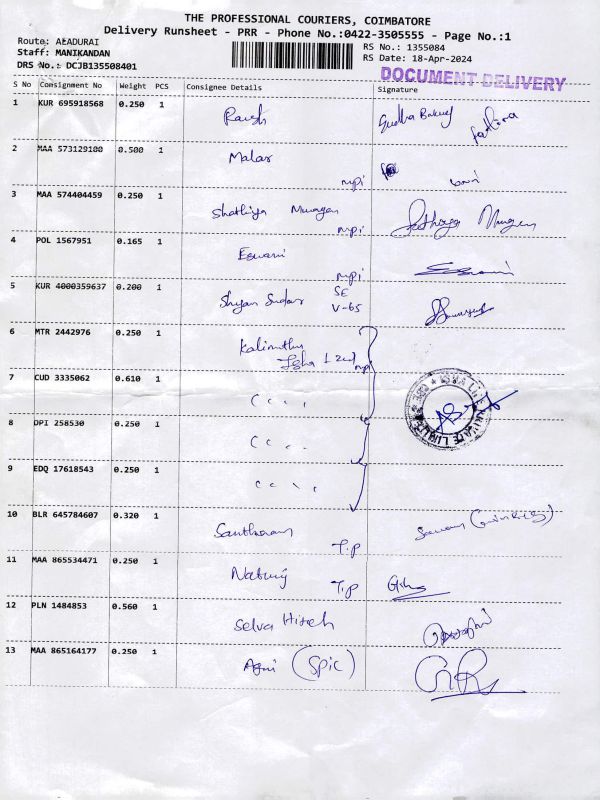 THE PROFESSIONAL COURIERS, COIMBATORE
Delivery Runsheet - PRR - Phone No.:0422-3505555 - Page No.:1
Route: ALADURAI
Staff: MANIKANDAN
DRS No.: DCJB135508401
RS No.: 1355084
RS Date: 18-Apr-2024
DOCUMENT DELIVERY
S No Consignment No Weight PCS Consignee Details Signature
1 KUR 695918568 0.250 1
2 MAA 573129100 0.500 1 Malar mpi
3 MAA 574404459 0.250 1 Shathiya Murugan mpi
4 POL 1567951 0.165 1 Eswari mpi
5 KUR 4000359637 0.200 1 Shyam Sundar SE V-65
6 MTR 2442976 0.250 1 Kalimuthu
Isha mpi
7 CUD 3335062 0.610 1
8 DPI 258530 0.250 1
9 EDQ 17618543 0.250 1
10 BLR 645784607 0.320 1 T.P
11 MAA 865534471 0.250 1 T.P
12 PLN 1484853 0.560 1 Selva Hitesh
13 MAA 865164177 0.250 1 Agni (Spic)